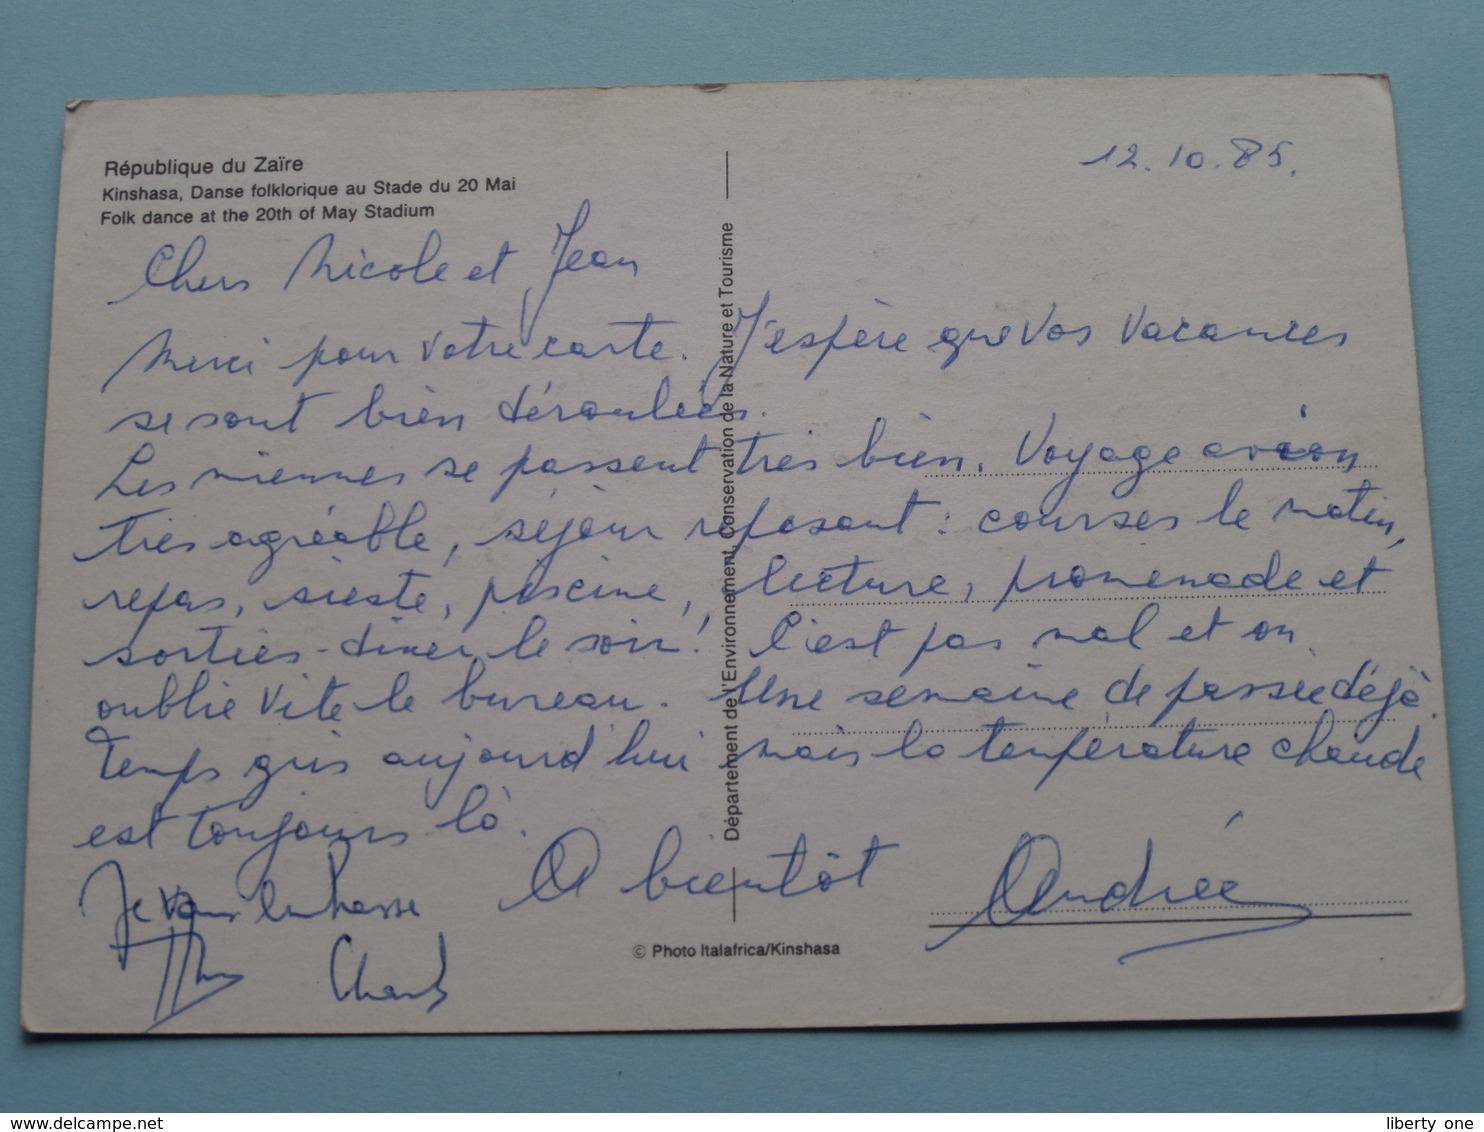 République du Zaïre
Kinshasa, Danse folklorique au Stade du 20 Mai
Folk dance at the 20th of May Stadium
12.10.85.
Chers Nicole et Jean
Merci pour votre carte. J'espère que vos vacances
se sont bien déroulées.
Les miennes se passent très bien. Voyage avion
très agréable, séjour reposant : courses le matin,
repas, sieste, piscine, lecture, promenade et
sorties-diner le soir! C'est pas mal et on
oublie vite le bureau. Une semaine de passée déjà.
Temps gris aujourd'hui mais la température chaude
est toujours là.
A bientôt
Andrée
Je vous embrasse
Charles
Département de l'Environnement, Conservation de la Nature et Tourisme
© Photo Italafrica/Kinshasa
delcampe.net
liberty one